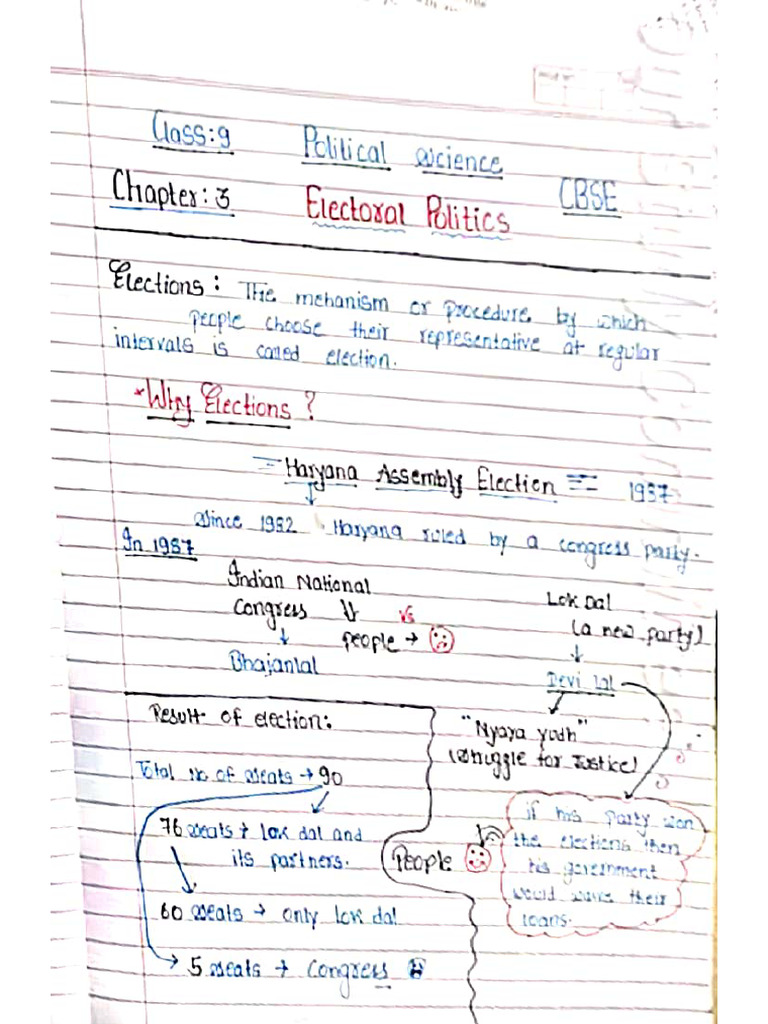 Class: 9 Political Science
CBSE
Chapter: 3 Electoral Politics
Elections: The mehanism or procedure by which
people choose their representative at regular
intervals is called election.
*Why Elections?
Haryana Assembly Election 1987
Since 1982 Haryana ruled by a congress party.
In 1987
Indian National
Congress vs
people →
Bhajanlal
Lok Dal
(a new party)
Devi lal
"Nyaya yudh"
(Struggle for Justice)
if his party won
the elections then
his government
would wave their
loans.
People
Result of election:
Total no of seats → 90
76 seats → lok dal and
its partners.
60 seats → only lok dal
5 seats → Congress